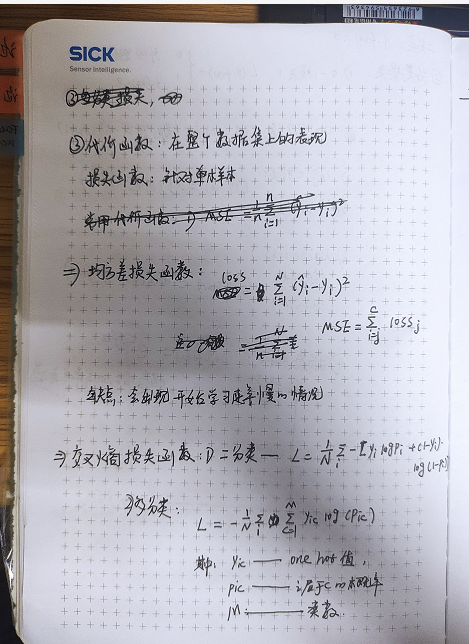 SICK
Sensor Intelligence.
③ 代价函数：在整个数据集上的表现
损失函数：针对单体样本
常用代价函数：① MSE = 1/n Σ_{i=1}^{n} (ŷi - yi)²
=> 均方差损失函数：
loss = Σ_{i=1}^{N} (ŷi - yi)²
MSE = Σ_{i=j}^{C} loss j
缺点：会出现 开始学习速率慢的情况
=> 交叉熵损失函数：① 二分类 — L = 1/N Σ_i -[yi log pi + (1-yi)·
log(1-pi)]
多分类：
L = -1/N Σ_i Σ_{c=1}^{M} yic log(pic)
其中：yic —— one hot 值，
pic —— i属于c的概率
M —— 类数